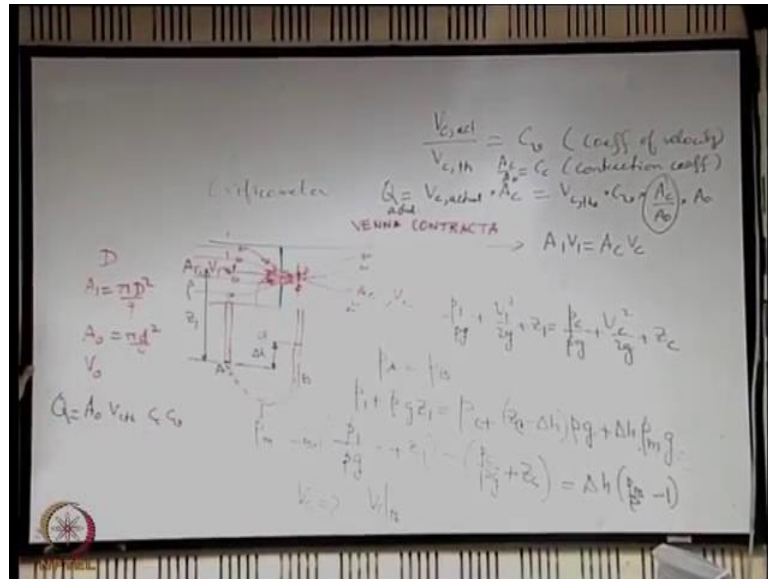 V_{c,act} / V_{c,th} = C_v (coeff of velocity)
A_c / A_o = C_c (contraction coeff)
Orificemeter
Q_{actual} = V_{c,actual} · A_c = V_{c,th} · C_v · A_c / A_o · A_o
VENNA CONTRACTA
→ A_1 V_1 = A_c V_c
D
A_1 = πD² / 4
A_o = πd² / 4
V_o
Q = A_o V_{c,th} C_c C_v
A_1, V_1
ρ
Z_1
Δh
A
B
A_c V_c
p_1 / ρg + V_1² / 2g + z_1 = p_c / ρg + V_c² / 2g + z_c
p_A = p_B
p_1 + ρg z_1 = p_c + (z_c - Δh) ρg + Δh ρ_m g
ρ_m
(p_1 / ρg + z_1) - (p_c / ρg + z_c) = Δh (ρ_m / ρ - 1)
NPTEL